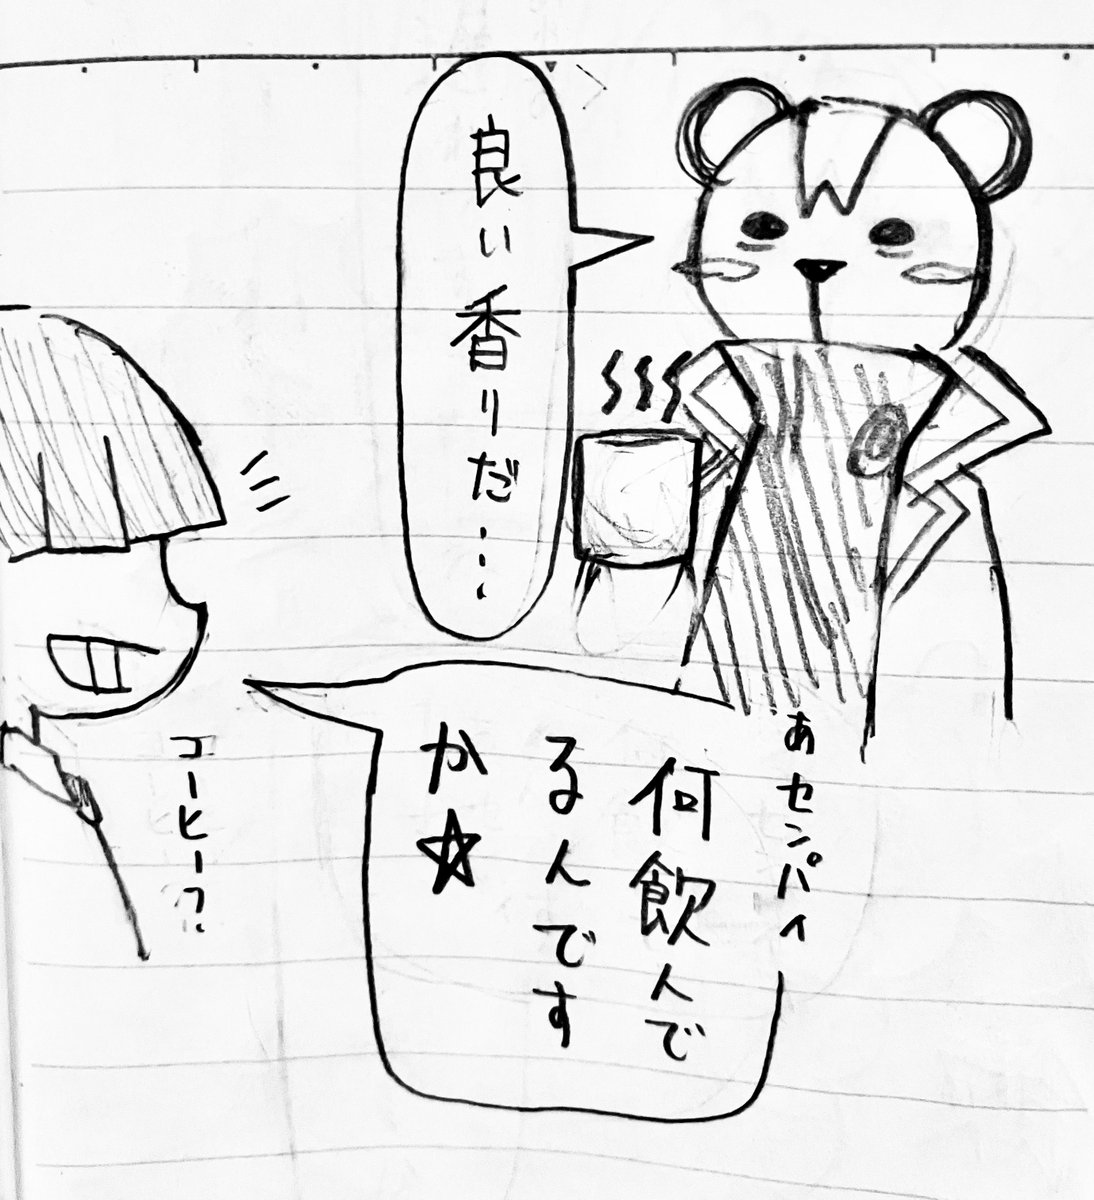 良い香りだ…
あセンパイ
何飲んで
るんです
か☆
コーヒー?